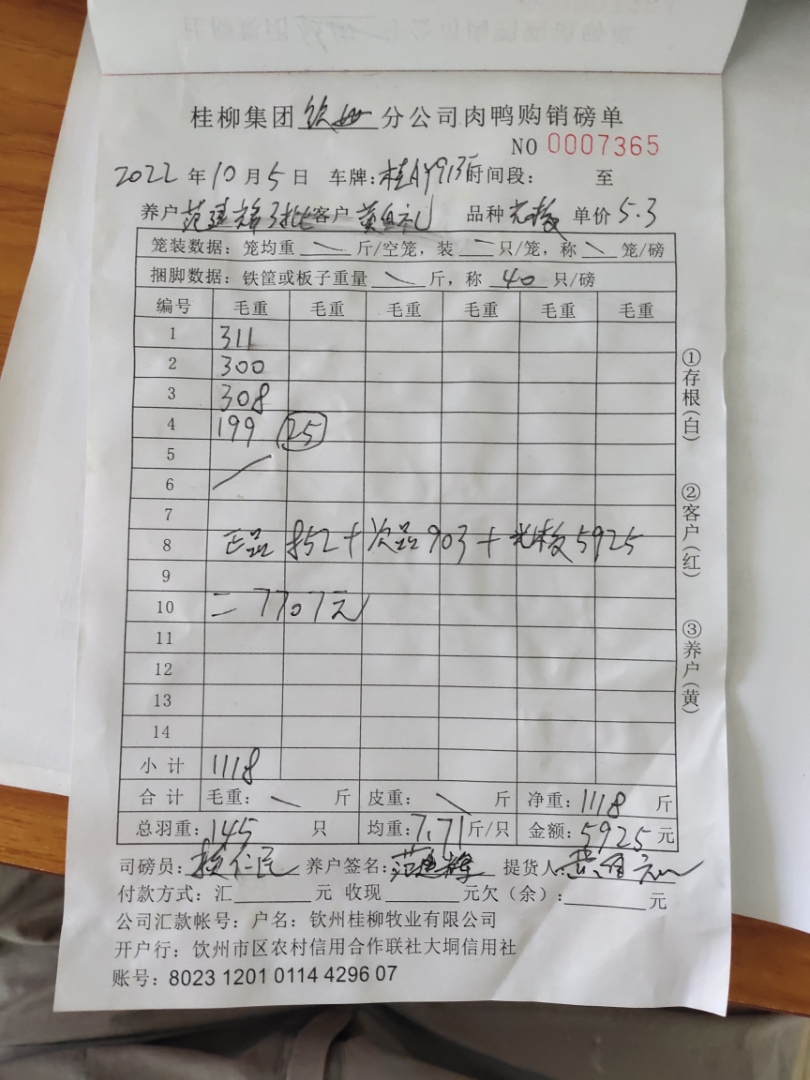 桂柳集团钦州分公司肉鸭购销磅单
NO 0007365
2022年10月5日 车牌:桂A 间段: 至
养户 范建 3批 客户 黄 礼 品种 单价 5.3
笼装数据:笼均重 \ 斤/空笼,装 \ 只/笼,称 \ 笼/磅
捆脚数据:铁筐或板子重量 \ 斤,称 40 只/磅
编号 毛重 毛重 毛重 毛重 毛重 毛重
1 311
2 300
3 308
4 199 25
5
6
7
8 正品 852+次品903+ 5925
9
10 =7707元
11
12
13
14
小计 1118
合计 毛重: \ 斤 皮重: \ 斤 净重:1118 斤
总羽重:145 只 均重:7.71斤/只 金额:5925元
司磅员: 仁民 养户签名:范建 提货人:黄
付款方式:汇______元 收现______元欠(余):______元
公司汇款帐号:户名:钦州桂柳牧业有限公司
开户行:饮州市区农村信用合作联社大垌信用社
账号:8023 1201 0114 4296 07
①存根(白)
②客户(红)
③养户(黄)